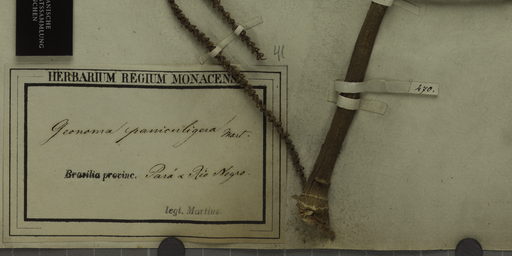 ANISCHE
TSSAMMLUNG
NCHEN
41
HERBARIUM REGIUM MONACENSE
470.
Geonoma paniculigera Mart.
Brasilia provinc. Pará & Rio Negro.
legt. Martius.